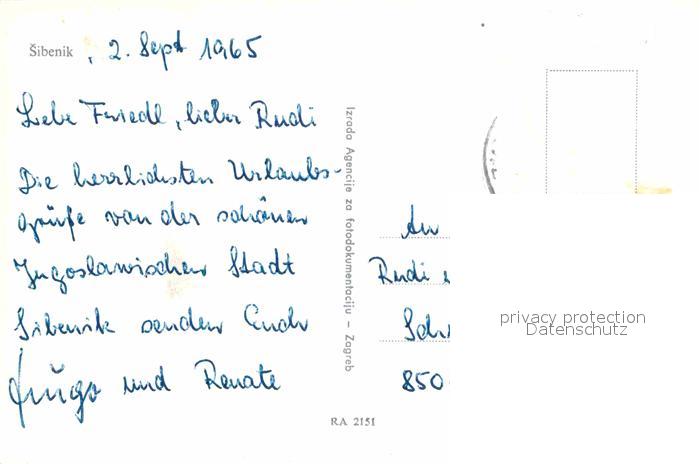 Šibenik, 2. Sept 1965
Liebe Friedl, lieber Rudi
Die herrlichsten Urlaubs-
grüße von der schönen
Jugoslawischen Stadt
Sibenik senden Euch
Hugo und Renate
Izrada Agencije za fotodokumentaciju – Zagreb
RA 2151
An
Rudi
850
privacy protection
Datenschutz